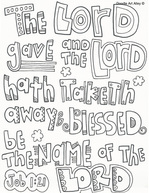 Doodle Art Alley ©
The LORD
gave and the LORD
hath Taketh
away & BLESSED
be the NAME of the
LORD
Job 1:21